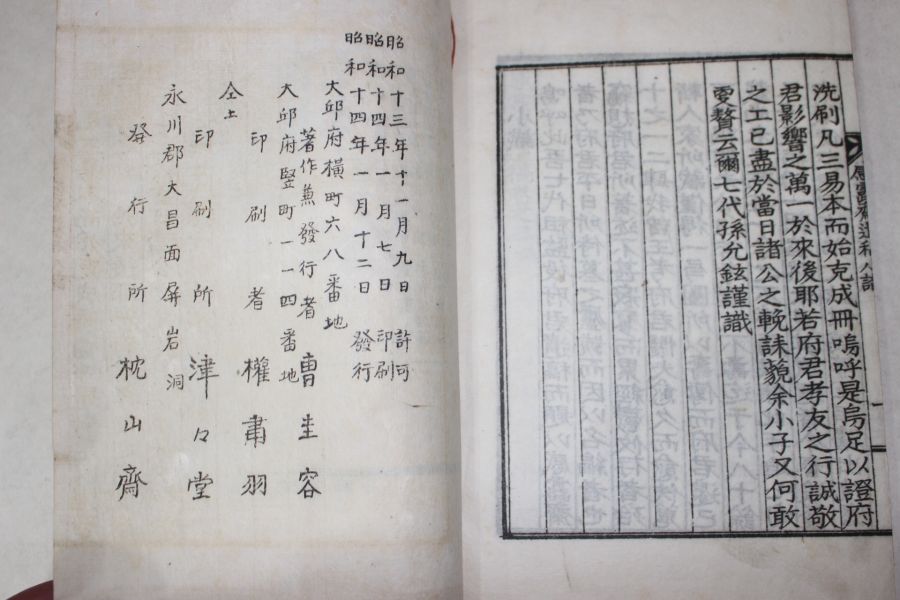 洗刷凡三易本而始克成冊嗚呼是烏足以證府
君影響之萬一於來後耶若府君孝友之行誠敬
之工已盡於當日諸公之輓誄藐余小子又何敢
更贅云爾七代孫允鉉謹識
昭和十三年十一月九日 許可
昭和十四年一月七日 印刷
昭和十四年一月十二日 發行
大邱府橫町六八番地
著作兼發行者 曺圭容
大邱府竪町一一四番地
印刷者 權肅羽
仝上
印刷所 津々堂
永川郡大昌面屏岩洞
發行所 枕山齋